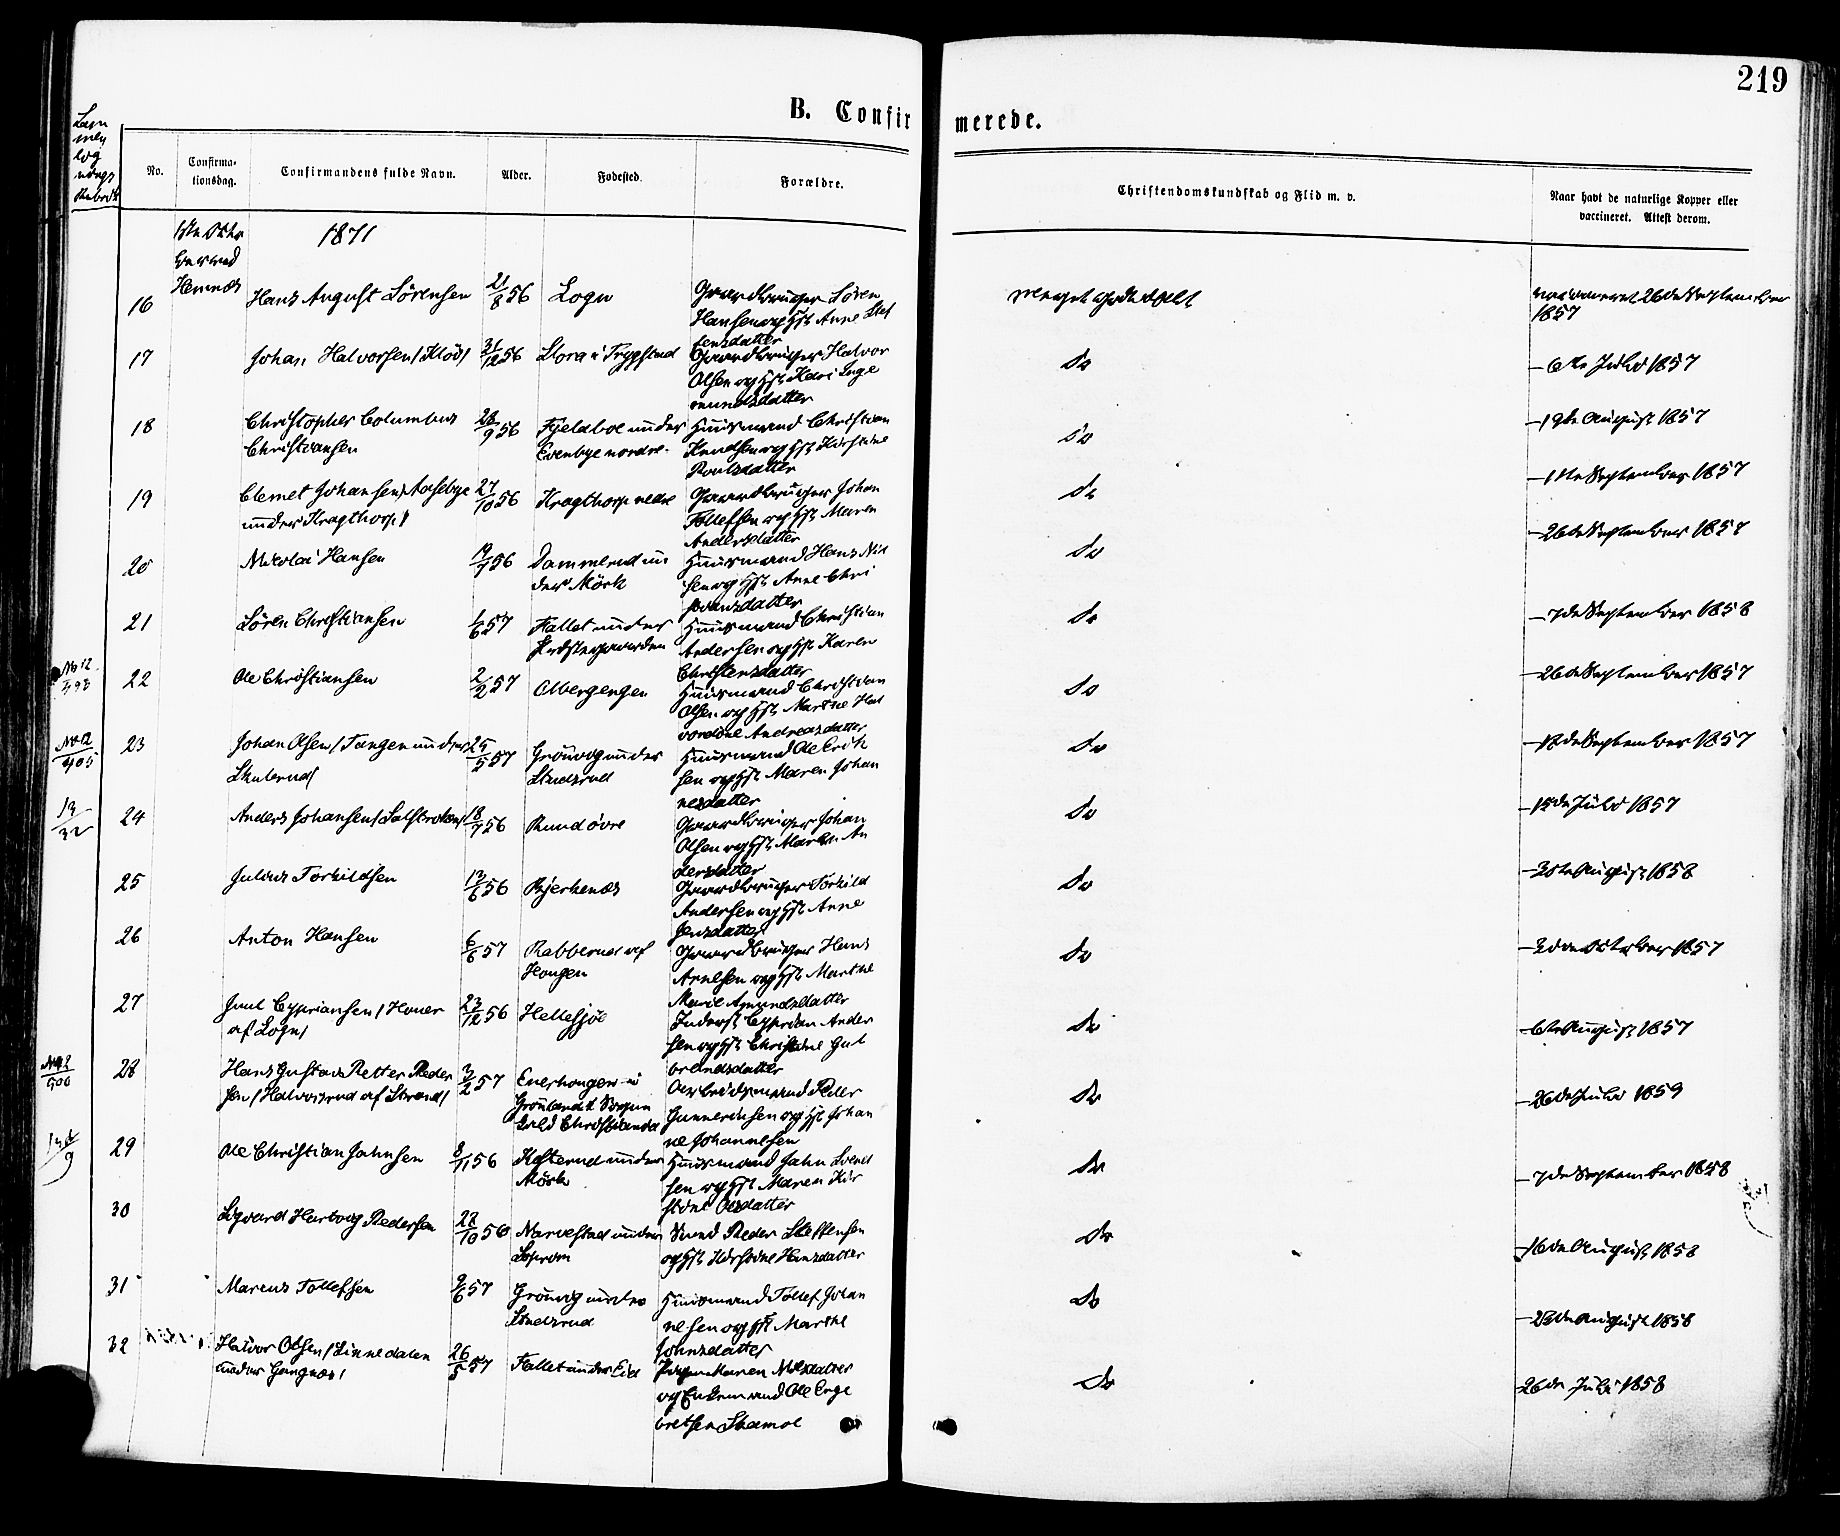 219
B. Confirmerede.
No.
Confirma-
tionsdag.
Confirmandens fulde Navn.
Alder.
Fødested.
Forældre.
Christendomskundskab og Flid m. v.
Naar havt de naturlige Kopper eller
vaccineret. Attest derom.
1871
Hemnæs
16 Hans August Sörensen 21/8 56 Logn
Gaardbruger Sören
Hansen og Hst. Anne Stef
fensdatter
meget godt
vaccineret 26de September
1857
17 Johan Halvorsen 31/12 56 Stora i Trygstad
Gaardbruger Halvor
Olsen og Hst. Kari Inge
mundsdatter
do
6te Juli 1857
18 Christopher Columbus
Christiansen
28/9 56 Fjeldboe under
Evenbye nordre.
Huusmand Christian
Knudsen og Hst. Kirstine
Poulsdatter
do
19de August 1857
19 Clemet Johansen
under Kragthorp
27/10 56 Kragthorp nedre
Gaardbruger Johan
Tollefsen og Hst. Maren
Andersdatter
do
11te September 1857
20 Nikolai Hansen 56 Dammerud un
der Mörk
Huusmand Hans Nil
sen og Hst. Anne Chri
stiansdatter
do
26de September 1857
21 Sören Christiansen 1/6 57 Fallet under
Præstegaarden
Huusmand Christian
Andersen og Hst. Karen
Christensdatter
do
7de September 1858
22 Ole Christiansen 2/2 57
Huusmand Christian
Olsen og Hst. Marthe Hal
vordine Andreasdatter
do
26de September 1857
23 Johan Olsen / Tangen under
Skulerud /
25/5 57 Grönvig under
Lindsrud
Huusmand Ole Erik
sen og Hst. Maren Johan
nesdatter
do
18de September 1857
24 Anders Johansen 18/7 56 Rund övre
Gaardbruger Johan
Olsen og Hst. Maren An
dersdatter
do
15de Juli 1857
25 Julius Torkildsen 13/6 56 Bjerkenæs
Gaardbruger Torkild
Andersen og Hst. Anne
Jensdatter
do
August 1858
26 Anton Hansen 6/6 57 Rabberud af
Haugen
Gaardbruger Hans
Arnesen og Hst. Marthe
Marie Amundsdatter
do
October 1857
27 Juul Cypriansen / Honer
af Logn /
23/12 56 Hellesjöe
Inderst Cyprian Ander
sen og Hst. Christine Gul
brandsdatter
do
6te August 1857
28 Hans Gustav Petter Peder
sen / Halvorsrud af Strand /
3/2 57 Enerhaugen i
Grönlands Sogn
Arbeidsmand Peder
Gunnerius­sen og Hst. Johan
ne Johannesen
do
26de Juli 1859
29 Ole Christian Jahnsen 8/11 56 Kasterud under
Mörk
Huusmand Jahn Svend
sen og Hst. Maren Kir
stine Olsdatter
do
7de September 1858
30 Sigvard Hartvig Pedersen 22/10 56 Narvestad under
Soprom
Smed Peder Steffensen
og Hst. Kirstine Hansdatter
do
16de August 1858
31 Marcus Tollefsen 9/6 57 Grönvig under
Lindsrud
Huusmand Tollef Johan
nesen og Hst. Marthe
Johnsdatter
do
August 1858
32 Halvor Olsen / Linnedalen
under Gangnæs /
26/5 57 Fallet under Eid
Pigen Maren Nilsdatter
og Enkemand Ole Enge
bretsen Skamol
do
26de Juli 1858